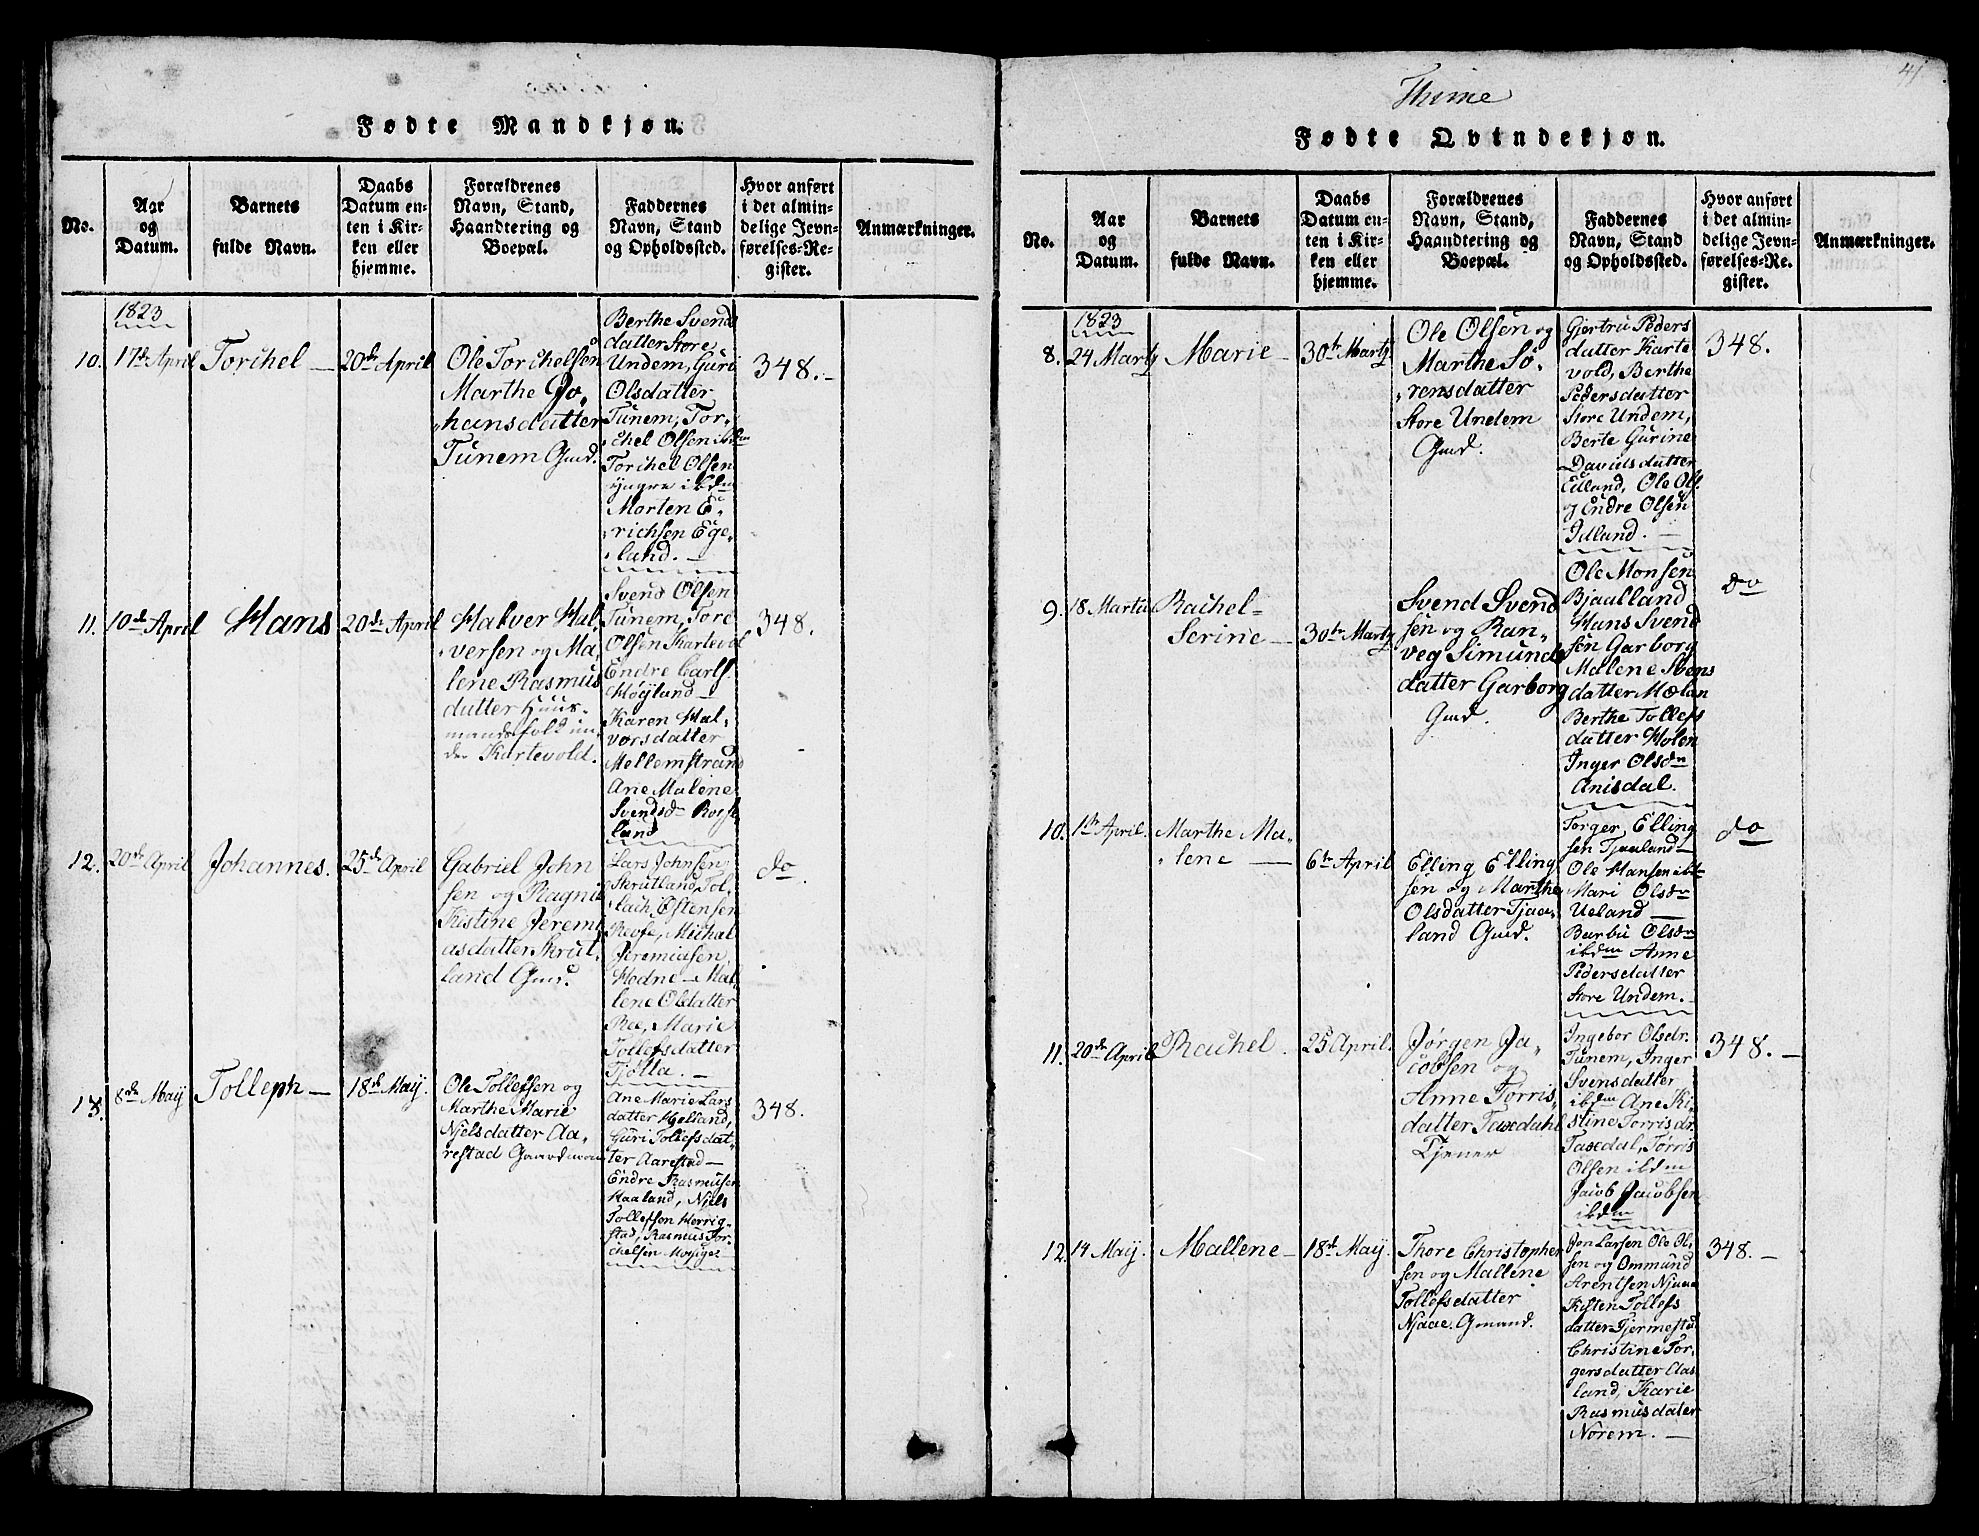 Fødte Mandkjøn.
No.
Aar
og
Datum.
Barnets
fulde Navn.
Daabs
Datum en-
ten i Kir-
ken eller
hjemme.
Forældrenes
Navn, Stand,
Haandtering og
Boepæl.
Faddernes
Navn, Stand
og Opholdssted.
Hvor anført
i det almin-
delige Jevn-
førelses-Re-
gister.
Anmærkninger.
1823
10.
17de April
Torchel —
20de April
Ole Torchelsen
Marthe Jo,
„hansdatter
Tunem Gmd.
Berthe Svends
datter Store
Undem, Guri
Olsdatter
Tunem, Tor-
chel Olsen ibdm
Torchel Olsen
yngre ibdm
Morten E,
„richsen Ege,
„land. —
348. -
11.
10de April
Hans
20de April
Halver Hal,
„versen og Ma,
lene Rasmus
datter Huus-
mandsfolk un,
der Kartevold.
Svend Olsen
Tunem, Tore
Olsen Kartevol
Endre Carls.
Høyland —
Karen Hal,
vorsdatter
Mellemstrand
Ane Malene
Svendsd
land
348.
12.
20de April
Johannes.
25de April
Gabriel John
sen og Ragni
Kistine Jeremi
asdatter Skrut,
land Gmd.
Lars Johnsen
Skrutland, Tol,
lach Østensen
Michal
Jeremiasen
Hodne — Mal
lene Olsdatter
Roe, Marie
Tollefsdatter
Tjøtta. —
do
13.
8de May
Tolleph —
18de May.
Ole Tollefsen og
Marthe Marie
Njelsdatter Aa,
restad Gaardmand
Ane Marie Lars
datter Helland,
Guri Tollefsdat,
ter Aarestad —
Endre Rasmusen
Haaland, Njels
Tollefsen Herrig-
stad, Rasmus Tor-
chelsen
348.
41
Thime
Fødte Qvindekjøn.
No.
Aar
og
Datum.
Barnets
fulde Navn.
Daabs
Datum en-
ten i Kir-
ken eller
hjemme.
Forældrenes
Navn, Stand,
Haandtering og
Boepæl.
Faddernes
Navn, Stand
og Opholdssted.
Hvor anført
i det almin-
delige Jevn-
førelses-Re-
gister.
Anmærkninger.
1823
8.
24 Martz
Marie —
30te Martz
Ole Olsen og
Marthe Sø,
„rensdatter
Store Undem
Gmd.
Gjertru Peders
datter Karte
vold, Berthe
Pedersdatter
Store Undem,
Berte Gurine
Davidsdatter
Eiland, Ole Ols.
og Endre Olsen
348.
9.
18 Martii
Rachel=
Serine —
30te Martz
Svend Svend
sen og Ran,
veg Simunds
datter Garborg
Gmd.
Ole Monsen
Bjaaland
Hans Svend
sen Garborg
Malene Svens
datter Mælan
Berthe Tollefs
datter Holen
Inger Olsdr
Anisdal.
do
10.
1te April.
Marthe Ma,
„lene —
6te April
Elling Elling
sen og Marthe
Olsdatter Tjaa,
land Gmd.
Torger Elling
sen Tjaaland —
Ole Hansen ibd
Mari Olsdr
Ueland —
Barbu Olsdr
ibdm Anne
Pedersdatter
Store Undem. -
do
11.
20de April
Rachel.
25 April.
Jørgen Ja,
cobsen og
Anne Torris,
datter Taxdahl
Tjener
Ingebor Olsdr.
Tunem, Inger
Svensdatter
ibdm Ane Ki,
stine Torrisdr.
Taxdal, Torris
Olsen ibdm
Jacob Jacobsen
ibdm
348. —
12.
14 May.
Mallene —
18de May.
Thore Christopher
sen og Mallene
Tollefsdatter
Njaae. Gmand.
Jon Larsen Ole Ol,
sen og Ommund
Arentsen Njaae
Kisten Tollefs
datter Tjermestad
Christine Tor,
gersdatter Aas
land, Karie
Rasmusdater
Norem. —
348. —